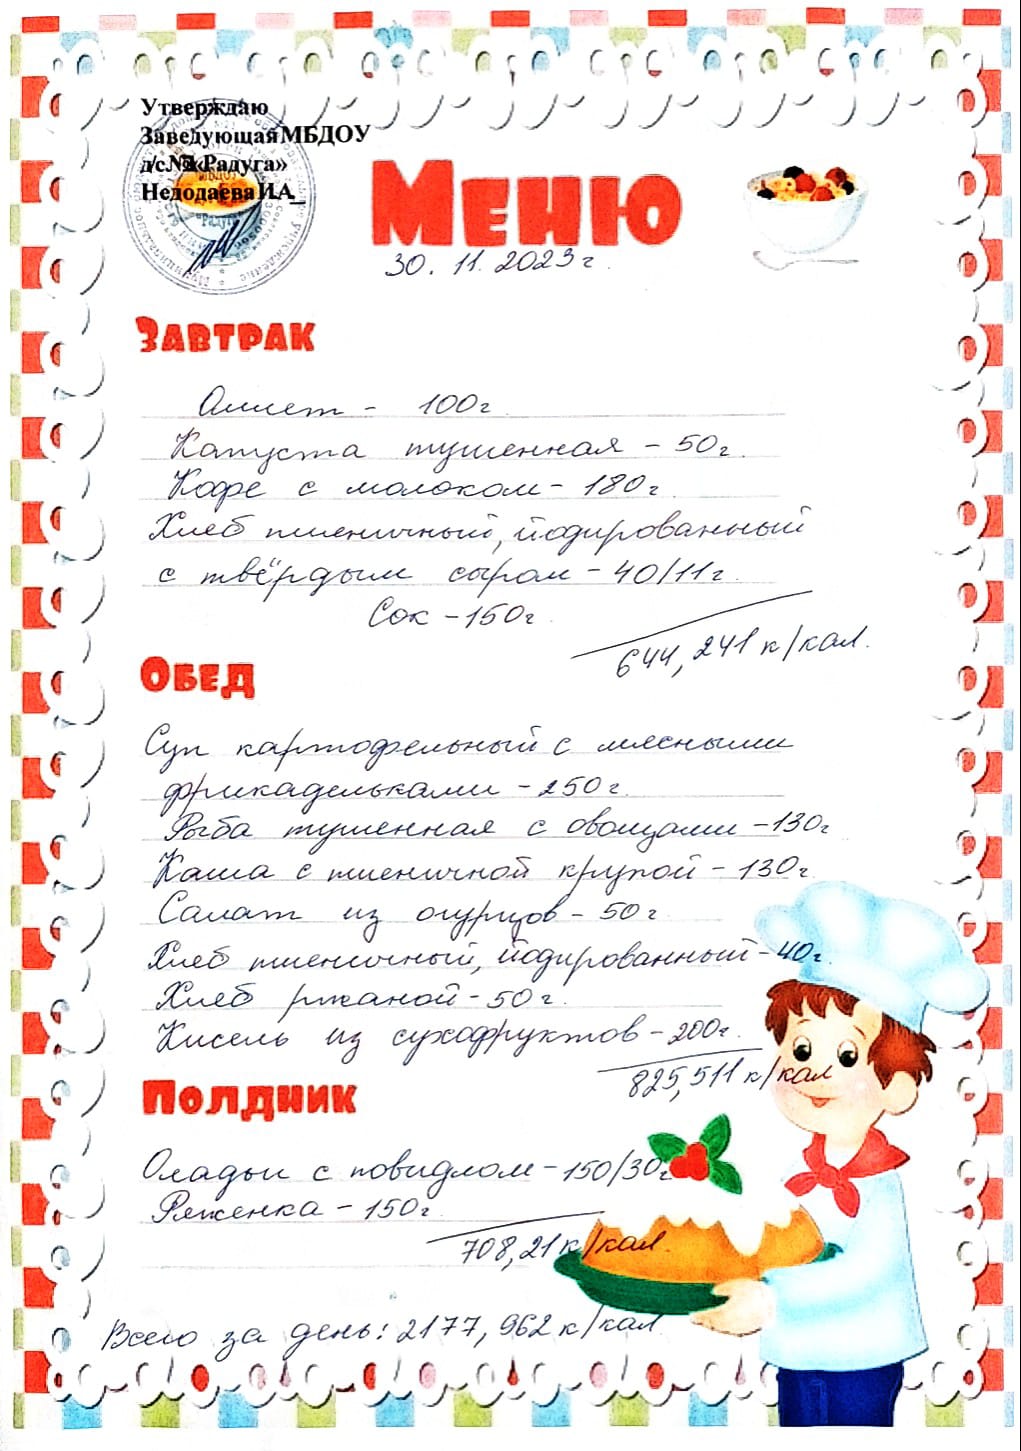 Утверждаю
Заведующая МБДОУ
д/с «Радуга»
Недодаева И.А_
Меню
30.11.2023г.
Завтрак
Омлет - 100г
Капуста тушенная - 50г.
Кофе с молоком - 180г
Хлеб пшеничный, йодированный
с твёрдым сыром - 40/11г.
Сок - 150г
644,241 к/кал.
Обед
Суп картофельный с мясными
фрикадельками - 250г.
Рыба тушенная с овощами - 130г
Каша с пшеничной крупой - 130г.
Салат из огурцов - 50г
Хлеб пшеничный, йодированный - 40г.
Хлеб ржаной - 50г.
Кисель из сухофруктов - 200г.
825,511 к/кал
Полдник
Оладьи с повидлом - 150/30г
Ряженка - 150г
708,21 к/кал.
Всего за день: 2177,962 к/кал